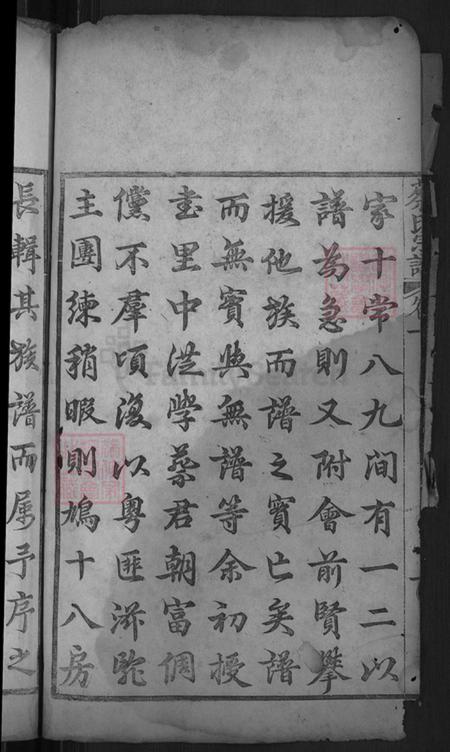 家十常八九间有一二以
譜為急則又附會前賢攀
援他族而譜之實亡矣譜
而無實與無譜等余初授
書里中洪學蔡君朝富倜
儻不羣頃復以粵匪滋聡
主團練稍暇則鳩十八房
長輯其族譜而属予序之
蔡氏宗譜